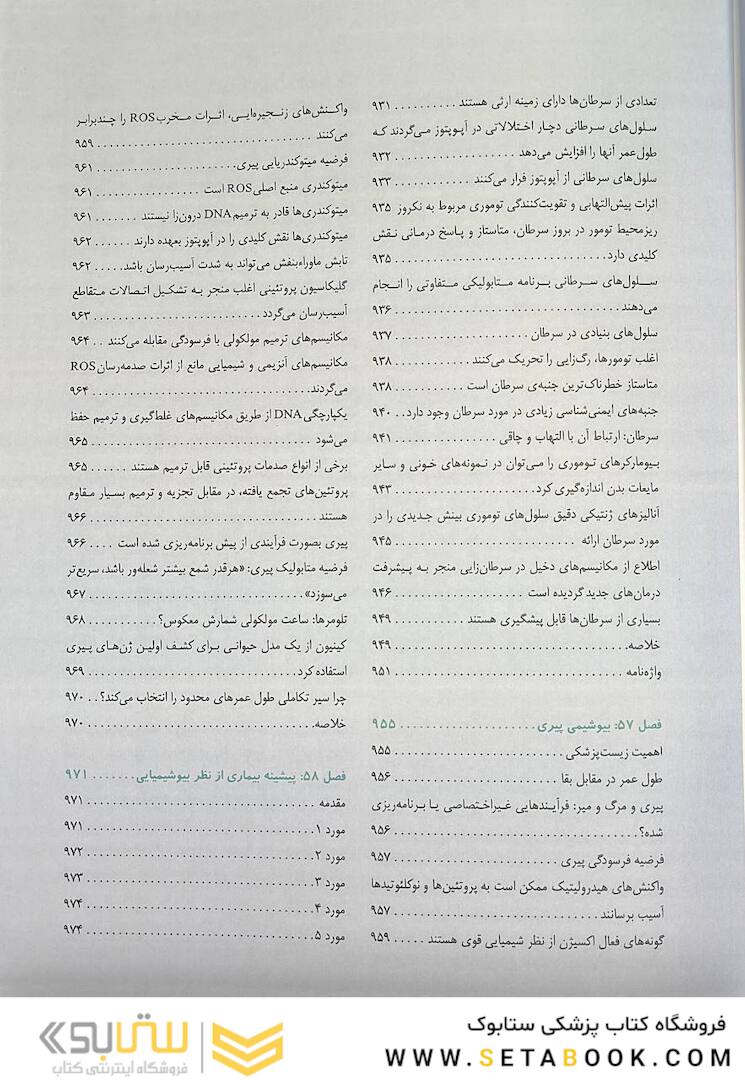 تعدادی از سرطان‌ها دارای زمینه ارثی هستند .......... ۹۳۱
سلول‌های سرطانی دچار اختلالاتی در آپوپتوز می‌گردند که
طول‌عمر آنها را افزایش می‌دهد .................. ۹۳۲
سلول‌های سرطانی از آپوپتوز فرار می‌کنند ............ ۹۳۳
اثرات پیش‌التهابی و تقویت‌کنندگی توموری مربوط به نکروز ۹۳۵
ریزمحیط تومور در بروز سرطان، متاستاز و پاسخ درمانی نقش
کلیدی دارد.................................. ۹۳۵
سلول‌های سرطانی برنامه متابولیکی متفاوتی را انجام
می‌دهند.................................... ۹۳۶
سلول‌های بنیادی در سرطان ..................... ۹۳۷
اغلب تومورها، رگ‌زایی را تحریک می‌کنند ............ ۹۳۸
متاستاز خطرناک‌ترین جنبه‌ی سرطان است ........... ۹۳۸
جنبه‌های ایمنی‌شناسی زیادی در مورد سرطان وجود دارد.. ۹۴۰
سرطان: ارتباط آن با التهاب و چاقی ................ ۹۴۱
بیومارکرهای توموری را می‌توان در نمونه‌های خونی و سایر
مایعات بدن اندازه‌گیری کرد...................... ۹۴۳
آنالیزهای ژنتیکی دقیق سلول‌های توموری بینش جدیدی را در
مورد سرطان ارائه ........................... ۹۴۵
اطلاع از مکانیسم‌های دخیل در سرطان‌زایی منجر به پیشرفت
درمان‌های جدید گردیده است .................... ۹۴۶
بسیاری از سرطان‌ها قابل پیشگیری هستند ............ ۹۴۹
خلاصه.................................... ۹۴۹
واژه‌نامه ................................... ۹۵۱
فصل ۵۷: بیوشیمی پیری .................... ۹۵۵
اهمیت زیست‌پزشکی ......................... ۹۵۵
طول عمر در مقابل بقا ......................... ۹۵۶
پیری و مرگ و میر: فرآیندهایی غیراختصاصی یا برنامه‌ریزی
شده؟..................................... ۹۵۶
فرضیه فرسودگی پیری ......................... ۹۵۷
واکنش‌های هیدرولیتیک ممکن است به پروتئین‌ها و نوکلئوتیدها
آسیب برسانند................................ ۹۵۷
گونه‌های فعال اکسیژن از نظر شیمیایی قوی هستند ..... ۹۵۹
واکنش‌های زنجیره‌ایی، اثرات مخرب ROS را چندبرابر
می‌کنند ................................... ۹۵۹
فرضیه میتوکندریایی پیری....................... ۹۶۱
میتوکندری منبع اصلی ROS است ................. ۹۶۱
میتوکندری‌ها قادر به ترمیم DNA درون‌زا نیستند ....... ۹۶۱
میتوکندری‌ها نقش کلیدی را در آپوپتوز بعهده دارند ..... ۹۶۲
تابش ماوراءبنفش می‌تواند به شدت آسیب‌رسان باشد..... ۹۶۲
گلیکاسیون پروتئینی اغلب منجر به تشکیل اتصالات متقاطع
آسیب‌رسان می‌گردد........................... ۹۶۳
مکانیسم‌های ترمیم مولکولی با فرسودگی مقابله می‌کنند .. ۹۶۴
مکانیسم‌های آنزیمی و شیمیایی مانع از اثرات صدمه‌رسان ROS
می‌گردند................................... ۹۶۴
یکپارچگی DNA از طریق مکانیسم‌های غلط‌گیری و ترمیم حفظ
می‌شود ................................... ۹۶۵
برخی از انواع صدمات پروتئینی قابل ترمیم هستند ....... ۹۶۵
پروتئین‌های تجمع یافته، در مقابل تجزیه و ترمیم بسیار مقاوم
هستند .................................... ۹۶۶
پیری بصورت فرآیندی از پیش برنامه‌ریزی شده است .... ۹۶۶
فرضیه متابولیک پیری: «هرقدر شمع بیشتر شعله‌ور باشد، سریع‌تر
می‌سوزد» ................................. ۹۶۷
تلومرها: ساعت مولکولی شمارش معکوس؟ ........... ۹۶۸
کینیون از یک مدل حیوانی برای کشف اولین ژن‌های پیری
استفاده کرد................................. ۹۶۹
چرا سیر تکاملی طول عمرهای محدود را انتخاب می‌کند؟.. ۹۷۰
خلاصه.................................... ۹۷۰
فصل ۵۸: پیشینه بیماری از نظر بیوشیمیایی....... ۹۷۱
مقدمه .................................... ۹۷۱
مورد ۱.................................... ۹۷۱
مورد ۲.................................... ۹۷۲
مورد ۳.................................... ۹۷۳
مورد ۴.................................... ۹۷۴
مورد ۵.................................... ۹۷۴
فروشگاه کتاب پزشکی ستابوک
WWW.SETABOOK.COM
ستابوک
فروشگاه اینترنتی کتاب